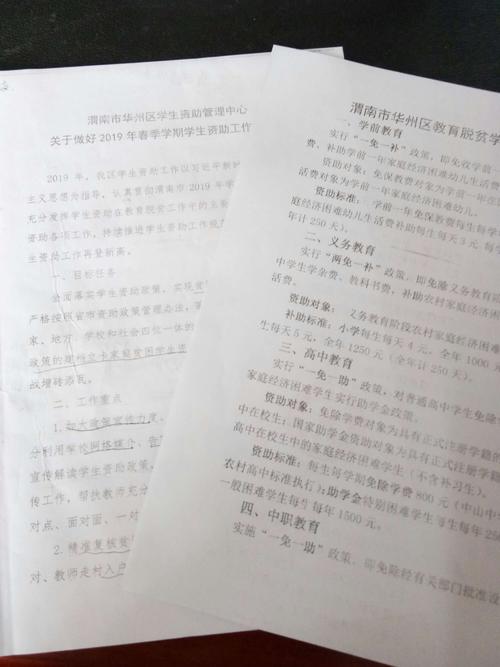 渭南市华州区学生资助管理中心
关于做好 2019 年春季学期学生资助工作
2019 年，我区学生资助工作以习近平新时
主义思想为指导，认真贯彻渭南市 2019 年学
充分发挥学生资助在教育脱贫工作中的主
资助各项工作，持续推进学生资助工作规
生资助工作再登新高。
一、目标任务
全面落实学生资助政策，实现资
严格按照省市资助政策管理办法，
家、地方、学校和社会四位一体的
政策的建档立卡家庭贫困学生资
战增砖添瓦。
二、工作重点
1.加大政策宣传力度。
分利用学论网络媒介、告
宣传解读学生资助政策，
传工作，帮扶教师充分
对点、面对面、一对
2.精准复核
对、教师走村入户
渭南市华州区教育脱贫学
一、学前教育
实行“一免一补”政策，即免收学前一
费、补助学前一年家庭经济困难幼儿生活
资助对象：免保教费对象为学前一年在
活费对象为学前一年家庭经济困难幼儿。
资助标准：学前一年免保教费每生每学
庭经济困难幼儿生活费补助每生每天 3 元，每学
年计 250 天）。
二、义务教育
实行“两免一补”政策，即免缴义务教育
中学生学杂费、教科书费，补助农村家庭经济困
活费。
资助对象：义务教育阶段农村家庭经济困难
补助标准：小学每生每天 4 元，全年 1000 元
生每天 5 元，全年 1250 元（全年计 250 天）。
三、高中教育
实行“一免一助”政策，对普通高中学生免除
家庭经济困难学生实行助学金政策。
资助对象：免除学费对象为具有正式注册学籍的
中在校生；国家助学金资助对象为具有正式注册学籍
高中在校生中的家庭经济困难学生（不含补习生）。
资助标准：每生每学期免除学费 800 元（中山中
农村高中标准执行）；助学金特别困难学生每生每年 250
一般困难学生每生每年 1500 元。
四、中职教育
实施“一免一助”政策，即免除经有关部门批准设